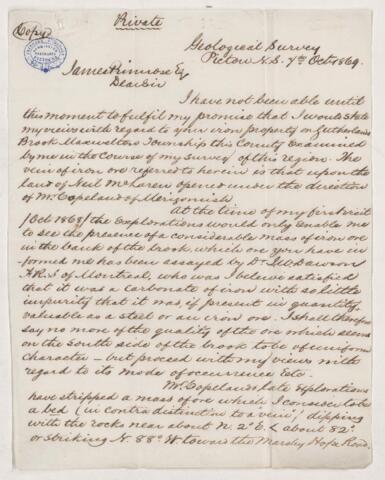 Private
(Copy)
Geological Survey
Pictou N.S. 7th Oct 1869.
James Primrose Esq
Dear Sir
I have not been able until
this moment to fulfil my promise that I would state
my views with regard to your iron property on Sutherlands
Brook Maxwelton Township this County Examined
by me in the Course of my survey of this region. The
vein of iron ore referred to herein is that upon the
land of Neil McLaren opened under the direction
of Mr. Copeland of Merigomish
At the time of my first visit
(Oct 1868) the Explorations would only Enable me
to see the presence of a considerable mass of iron ore
in the bank of the brook, which ore you have in-
formed me has been assayed by Dr. Dawson
F.R.S of Montreal, who was I believe satisfied
that it was a carbonate of iron with so little
impurity that it was, if present in quantity,
valuable as a steel or an iron ore. I shall therefore
say no more of the quality of the ore which seems
on the South side of the brook to be of uniform
character – but proceed with my views with
regard to its mode of occurrence Etc.
Mr. Copelands late Explorations
have stripped a mass of ore which I consider to be
a bed (in contradistinction to a vein) dipping
with the rocks near about N. 2° E. < about 82°
or striking N. 88° W toward the Marshy Hope Road.